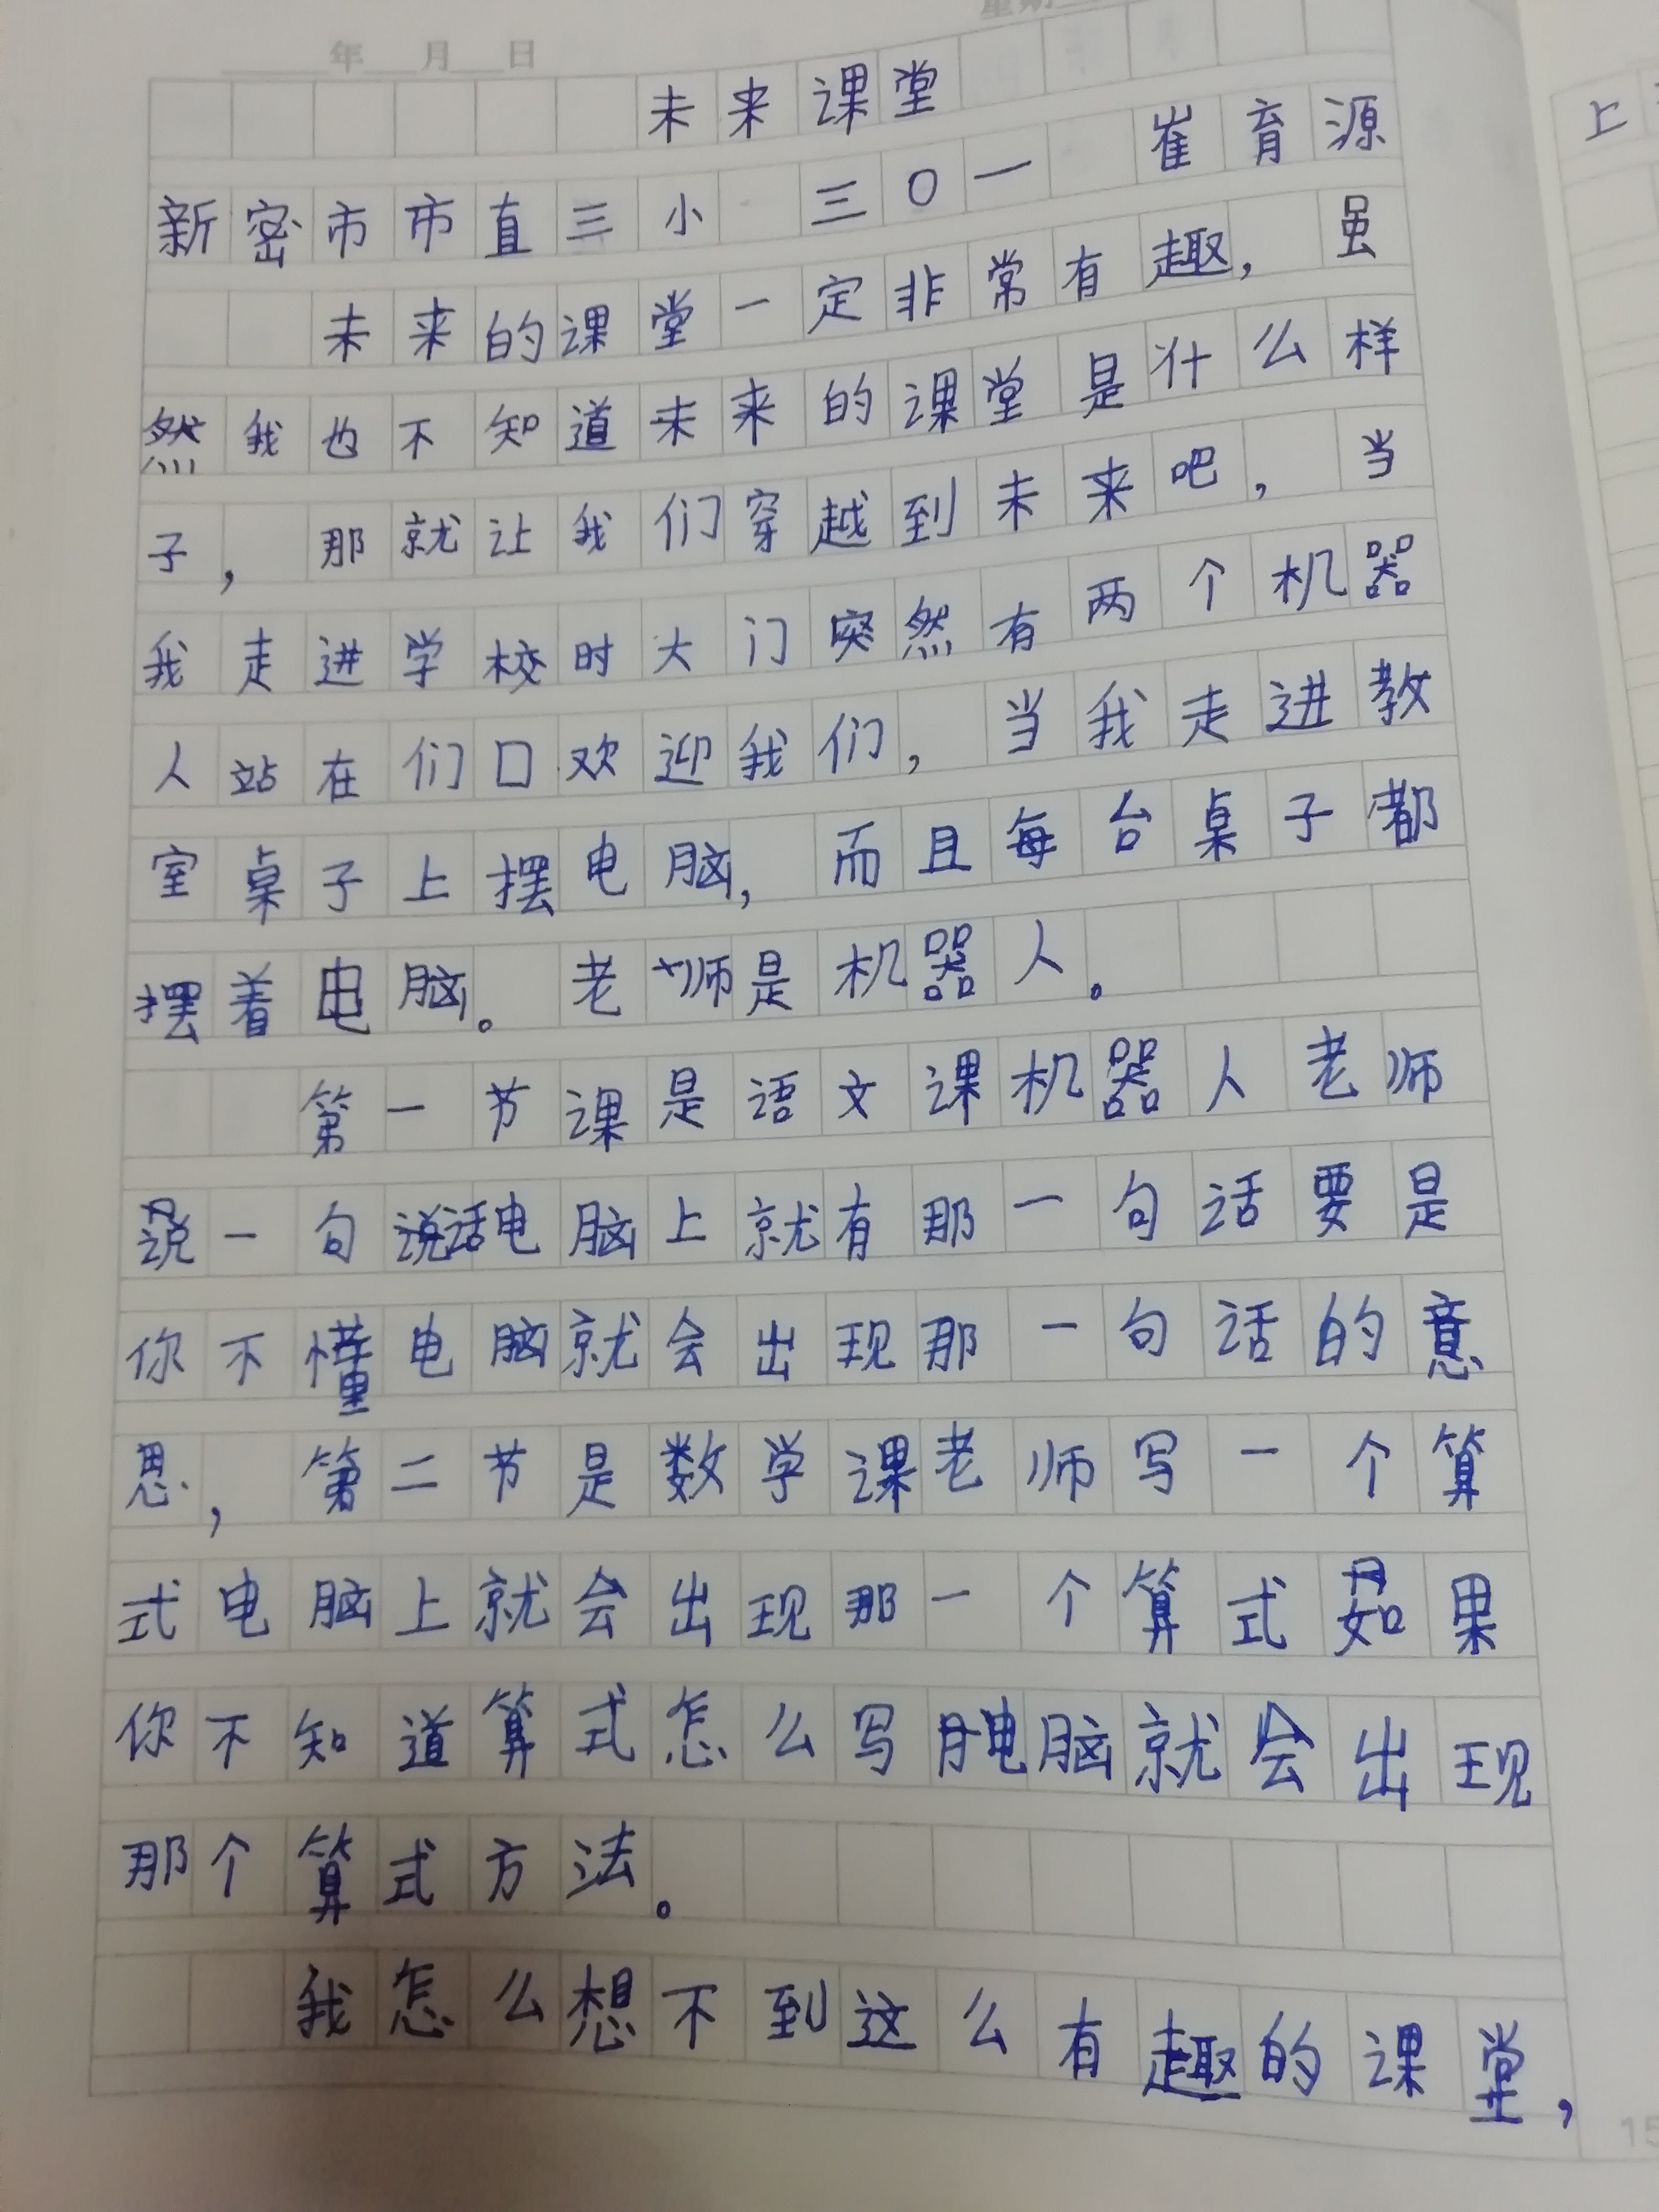 年 月 日
未来课堂
新密市市直三小 三〇一 崔育源
未来的课堂一定非常有趣，虽
然我也不知道未来的课堂是什么样
子，那就让我们穿越到未来吧，当
我走进学校时大门突然有两个机器
人站在们口欢迎我们，当我走进教
室桌子上摆电脑，而且每台桌子都
摆着电脑。老师是机器人。
第一节课是语文课机器人老师
说一句说话电脑上就有那一句话要是
你不懂电脑就会出现那一句话的意
思，第二节是数学课老师写一个算
式电脑上就会出现那一个算式如果
你不知道算式怎么写电脑就会出现
那个算式方法。
我怎么想不到这么有趣的课堂，
上